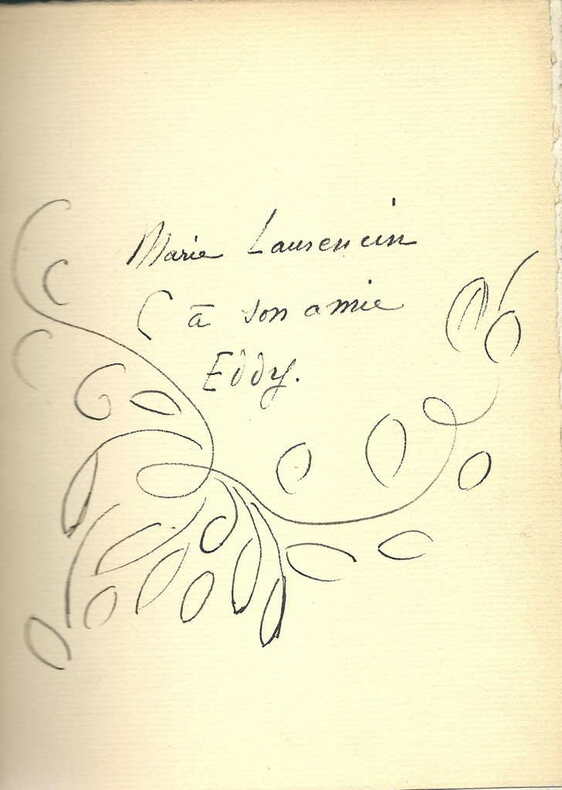 Marie Laurencin
à son amie
Eddy.